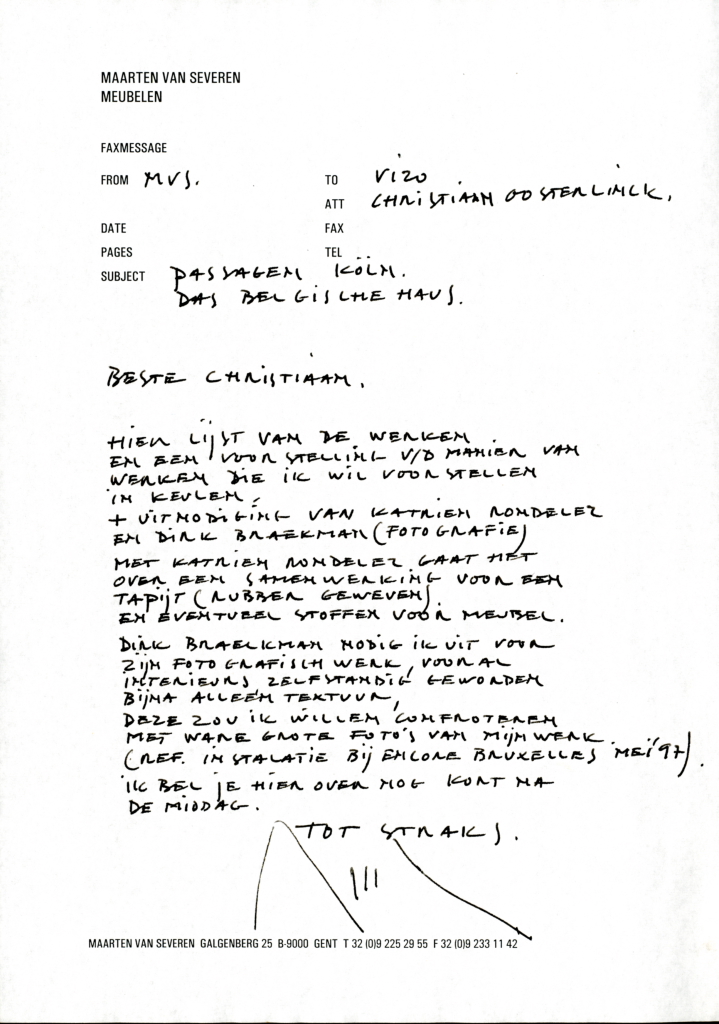 MAARTEN VAN SEVEREN
MEUBELEN
FAXMESSAGE
FROM MVS.
TO VIZO
ATT CHRISTIAAN OOSTERLINCK.
DATE
FAX
PAGES
TEL
SUBJECT PASSAGEN KÖLN.
DAS BELGISCHE HAUS.
BESTE CHRISTIAAN,
HIER LIJST VAN DE WERKEN
EN EEN VOORSTELLING V/D MANIER VAN
WERKEN DIE IK WIL VOORSTELLEN
IN KEULEN,
+ UITNODIGING VAN KATRIEN RONDELEZ
EN DIRK BRAEKMAN (FOTOGRAFIE)
MET KATRIEN RONDELEZ GAAT HET
OVER EEN SAMENWERKING VOOR EEN
TAPIJT (RUBBER GEWEVEN)
EN EVENTUEEL STOFFEN VOOR MEUBEL.
DIRK BRAECKMAN NODIG IK UIT VOOR
ZIJN FOTOGRAFISCH WERK, VOORAL
INTERIEURS ZELFSTANDIG GEWORDEN
BIJNA ALLEEN TEXTUUR,
DEZE ZOU IK WILLEN CONFROTEREN
MET WARE GROTE FOTO'S VAN MIJN WERK
(REF. INSTALATIE BIJ ENCORE BRUXELLES MEI '97).
IK BEL JE HIER OVER NOG KORT NA
DE MIDDAG.
TOT STRAKS.
MAARTEN VAN SEVEREN GALGENBERG 25 B-9000 GENT T 32 (0)9 225 29 55 F 32 (0)9 233 11 42